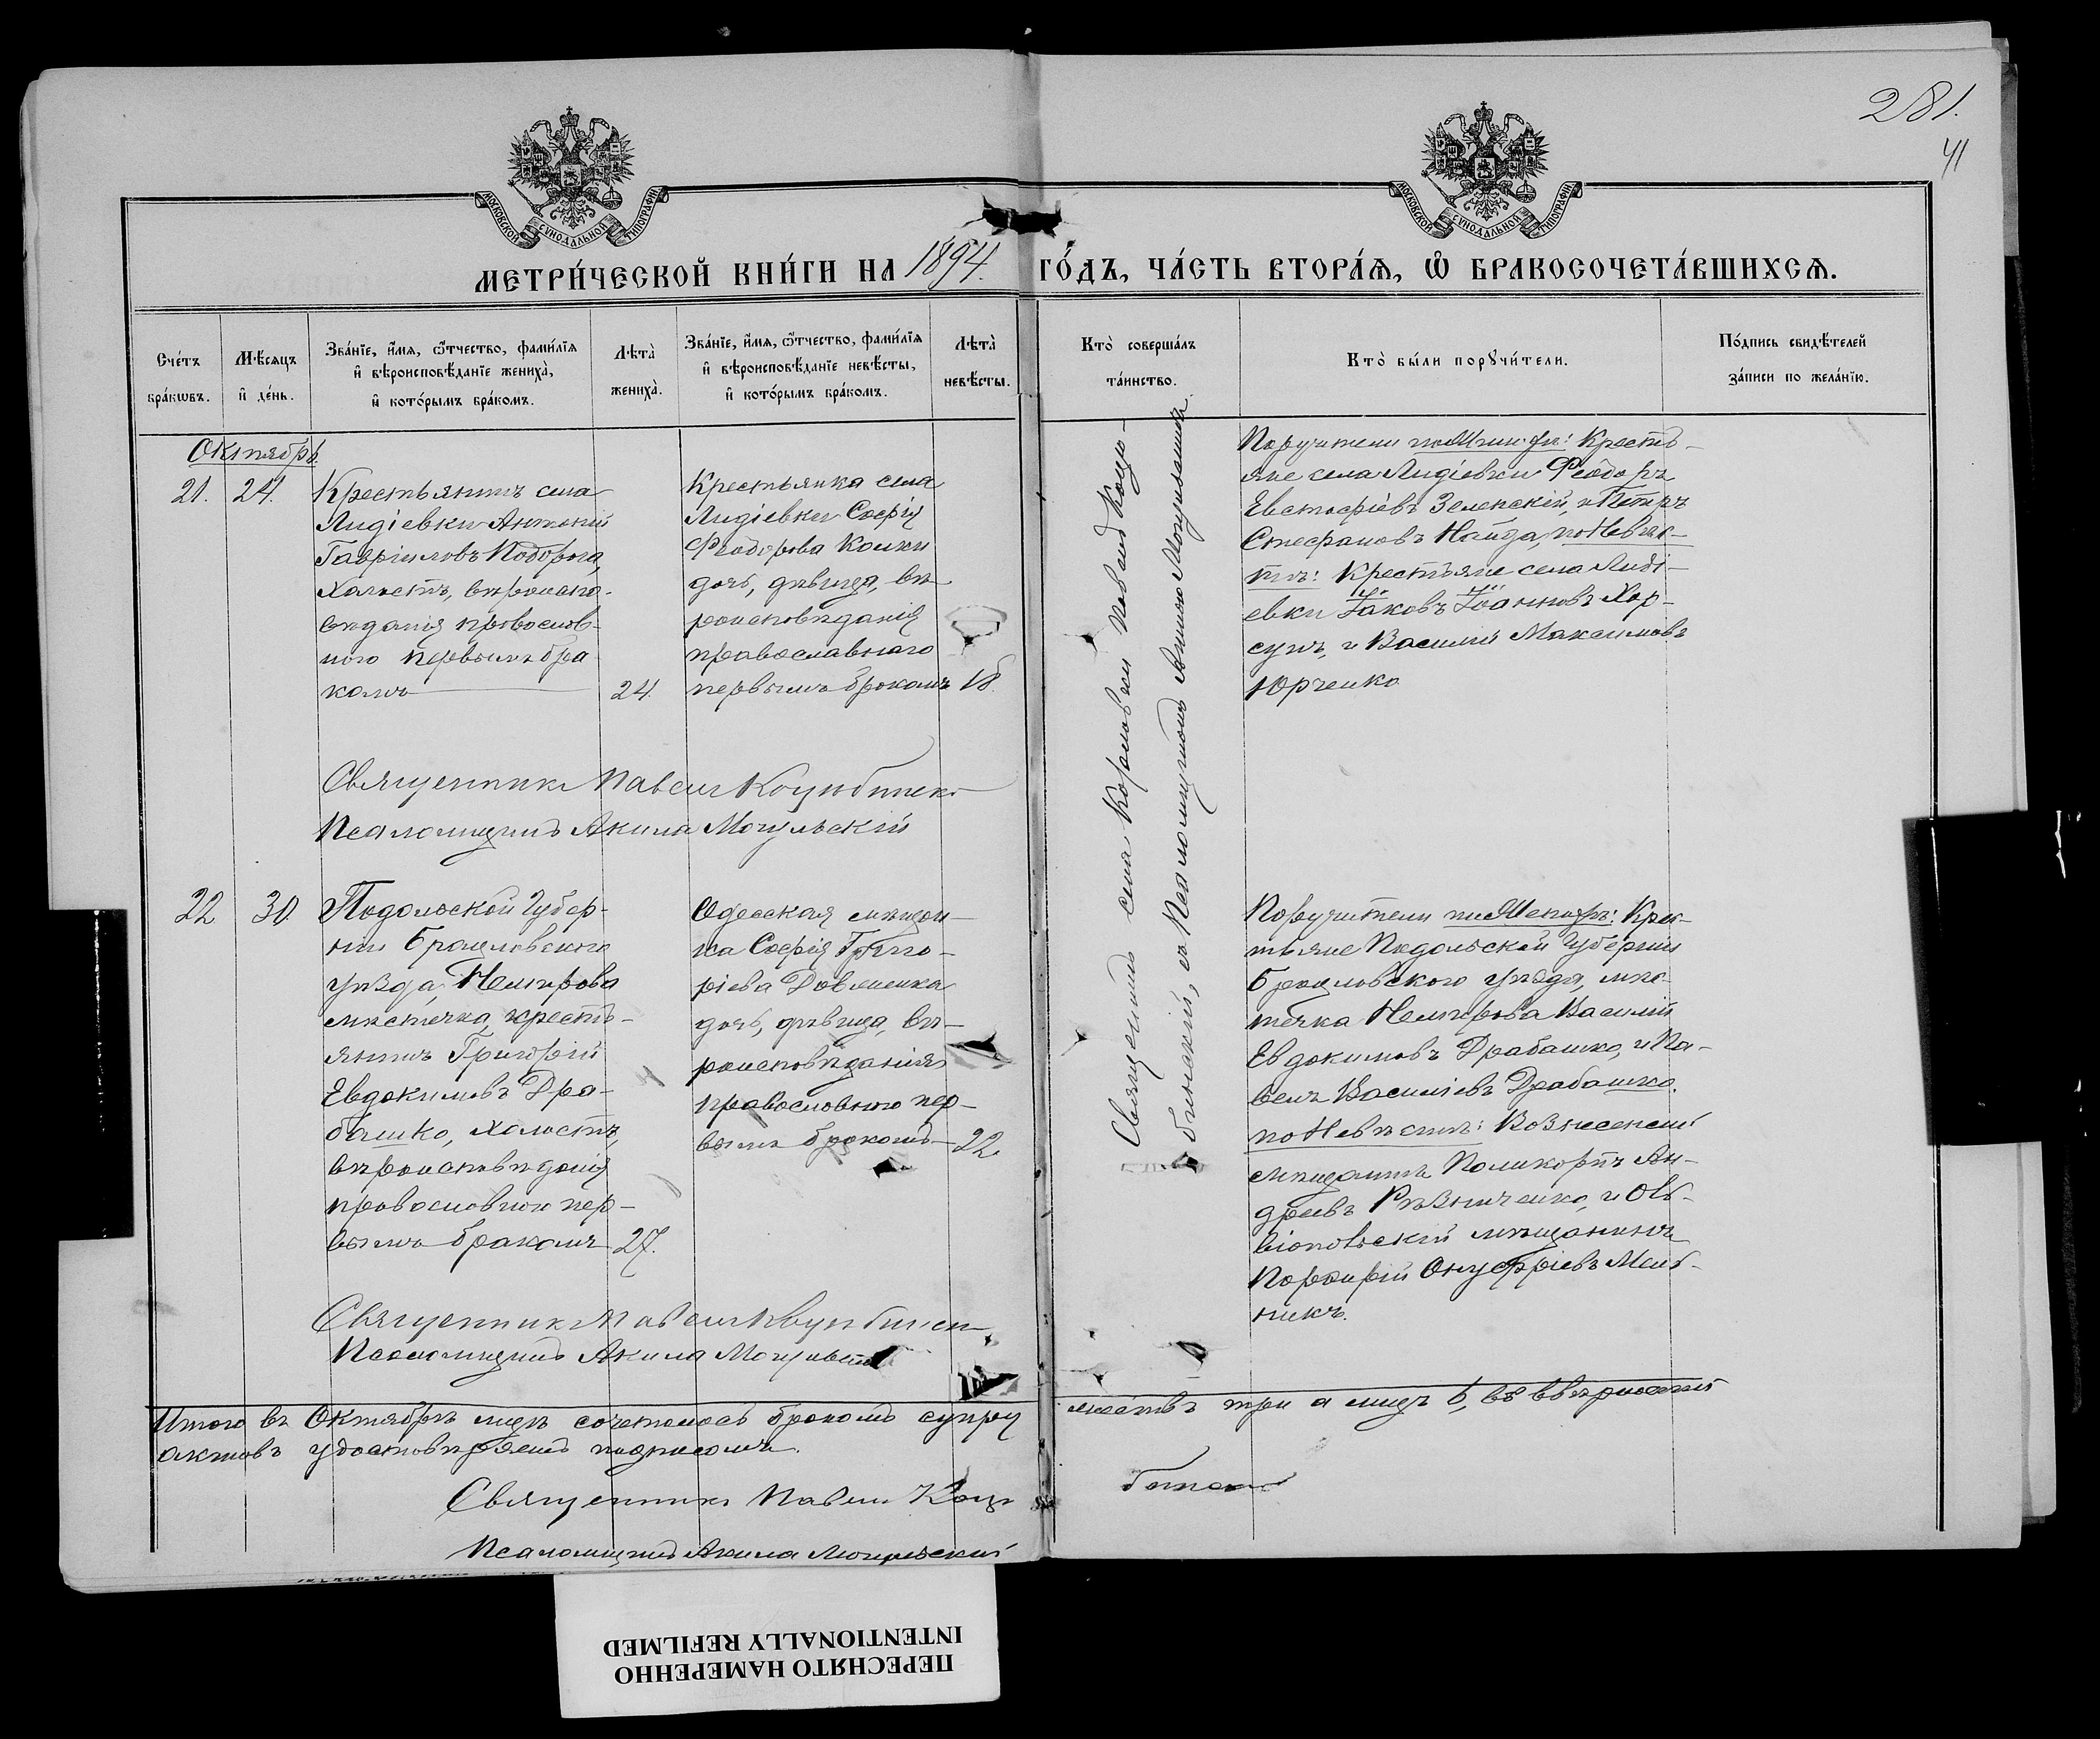 281.
41
МОСКОВСКОЙ СУНОДАЛЬНОЙ ТИПОГРАФІИ
МОСКОВСКОЙ СУНОДАЛЬНОЙ ТИПОГРАФІИ
МЕТРИ́ЧЕСКОЙ КНИ́ГИ НА 1894. ГО́ДЪ, ЧА́СТЬ ВТОРА́Ѧ, Ѡ҆ БРАКОСОЧЕТА́ВШИХСѦ.
Сче́тъ бра́кѡвъ.
Мѣ́сяцъ и҆ де́нь.
Зва́нїе, и҆́мѧ, ѻ҆́тчество, фами́лїѧ и҆ вѣроисповѣ́данїе жениха̀, и҆ кото́рымъ бра́комъ.
Лѣта̀ жениха̀.
Зва́нїе, и҆́мѧ, ѻ҆́тчество, фами́лїѧ и҆ вѣроисповѣ́данїе невѣ́сты, и҆ кото́рымъ бра́комъ.
Лѣта̀ невѣ́сты.
Кто̀ соверша́лъ та́инство.
Кто̀ бы́ли порꙋчи́тели.
По́дпись свидѣ́телей за́писи по жела́нїю.
Октябрь.
21. 24.
Крестьянинъ села
Лидіевки Антоній
Гавріиловъ Подорога,
холостъ, вѣроиспо-
вѣданія православ-
ного первымъ бра
комъ 24.
Крестьянка села
Лидіевки Софія
Феодорова Кошки
дочь, дѣвица, вѣ-
роисповѣданія
православнаго
первымъ бракомъ 18.
Священникъ села Кораловки Павелъ Коцю-
бинскій, съ Псаломщикомъ Акилою Могульскимъ.
Поручители по Женихѣ: Кресть-
яне села Лидіевки Феодоръ
Евстафіевъ Зеленскій, и Петръ
Стефановъ Найда, по Невѣс-
тѣ: Крестьяне села Лиді-
евки Іаковъ Іоанновъ Хор-
сунъ, и Василій Максимовъ
Юрченко
Священникъ Павелъ Коцюбинскій
Псаломщикъ Акила Могульскій
22 30.
Подольской Губер-
ніи Брацлавского
уѣзда, Немирова
мѣстечка, кресть-
янинъ Григорій
Евдокимовъ Дра-
башко, холостъ,
вѣроисповѣданія
православного пер-
вымъ бракомъ 27.
Одесская мѣщан-
ка Софія Григо-
ріева Довженка
дочь, дѣвица, вѣ-
роисповѣданія
православного пер-
вымъ бракомъ 22.
Поручители по Женихѣ: Крес-
тьяне Подольской Губерніи
Брацлавского уѣзда, мѣс-
течка Немирова Василій
Евдокимовъ Драбашко, и Па-
велъ Василіевъ Драбашко.
по Невѣстѣ: Вознесенскій
мѣщанинъ Поликарпъ Ан-
дреевъ Рѣзниченко, и Оль-
віопольскій мѣщанинъ
Порфирій Онуфріевъ Мель-
никъ.
Священникъ Павелъ Коцюбинскій
Псаломщикъ Акила Могульскій
Итого въ Октябрѣ мцѣ сочеталось бракомъ супружествъ три а лицъ 6, въ вѣрности
актовъ удостовѣряемъ подписомъ.
Священникъ Павелъ Коцюбинскій
Псаломщикъ Акила Могульскій
ПЕРЕСНЯТО НАМЕРЕННО
INTENTIONALLY REFILMED